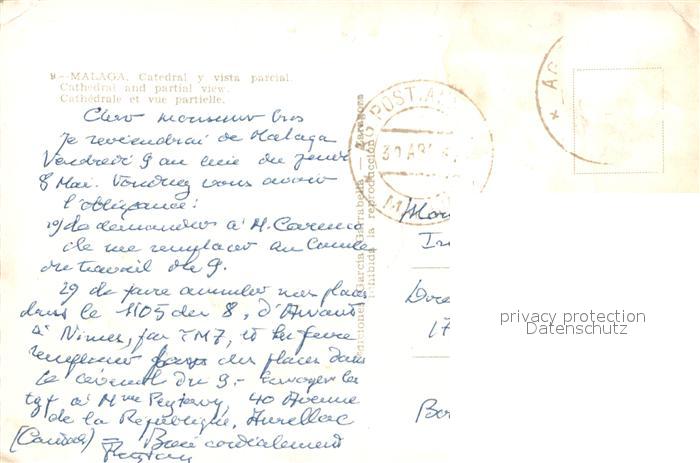 9.—MALAGA. Catedral y vista parcial.
Cathedral and partial view.
Cathédrale et vue partielle.
Cher monsieur
Je reviendrai de Malaga
Vendredi 9 au lieu du jeudi
8 Mai. Voudriez vous avoir
l'obligeance:
1) de demander à M.
de me remplacer au
du travail du 9.
2) de faire annuler mes places
dans le 1105 du 8, d'
à Nimes, par TM7, et les faire
remplacer par des places dans
le cévenol du 9.- Envoyer les
à Mme Peytavy, 40 Avenue
de la République, Aurillac
(Cantal) = Bien cordialement
Ediciones García Garrabella - Zaragoza
Prohibida la reproducción
POSTAL
30 ABR
AG
Mon
In
Dire
17
Bor
privacy protection
Datenschutz